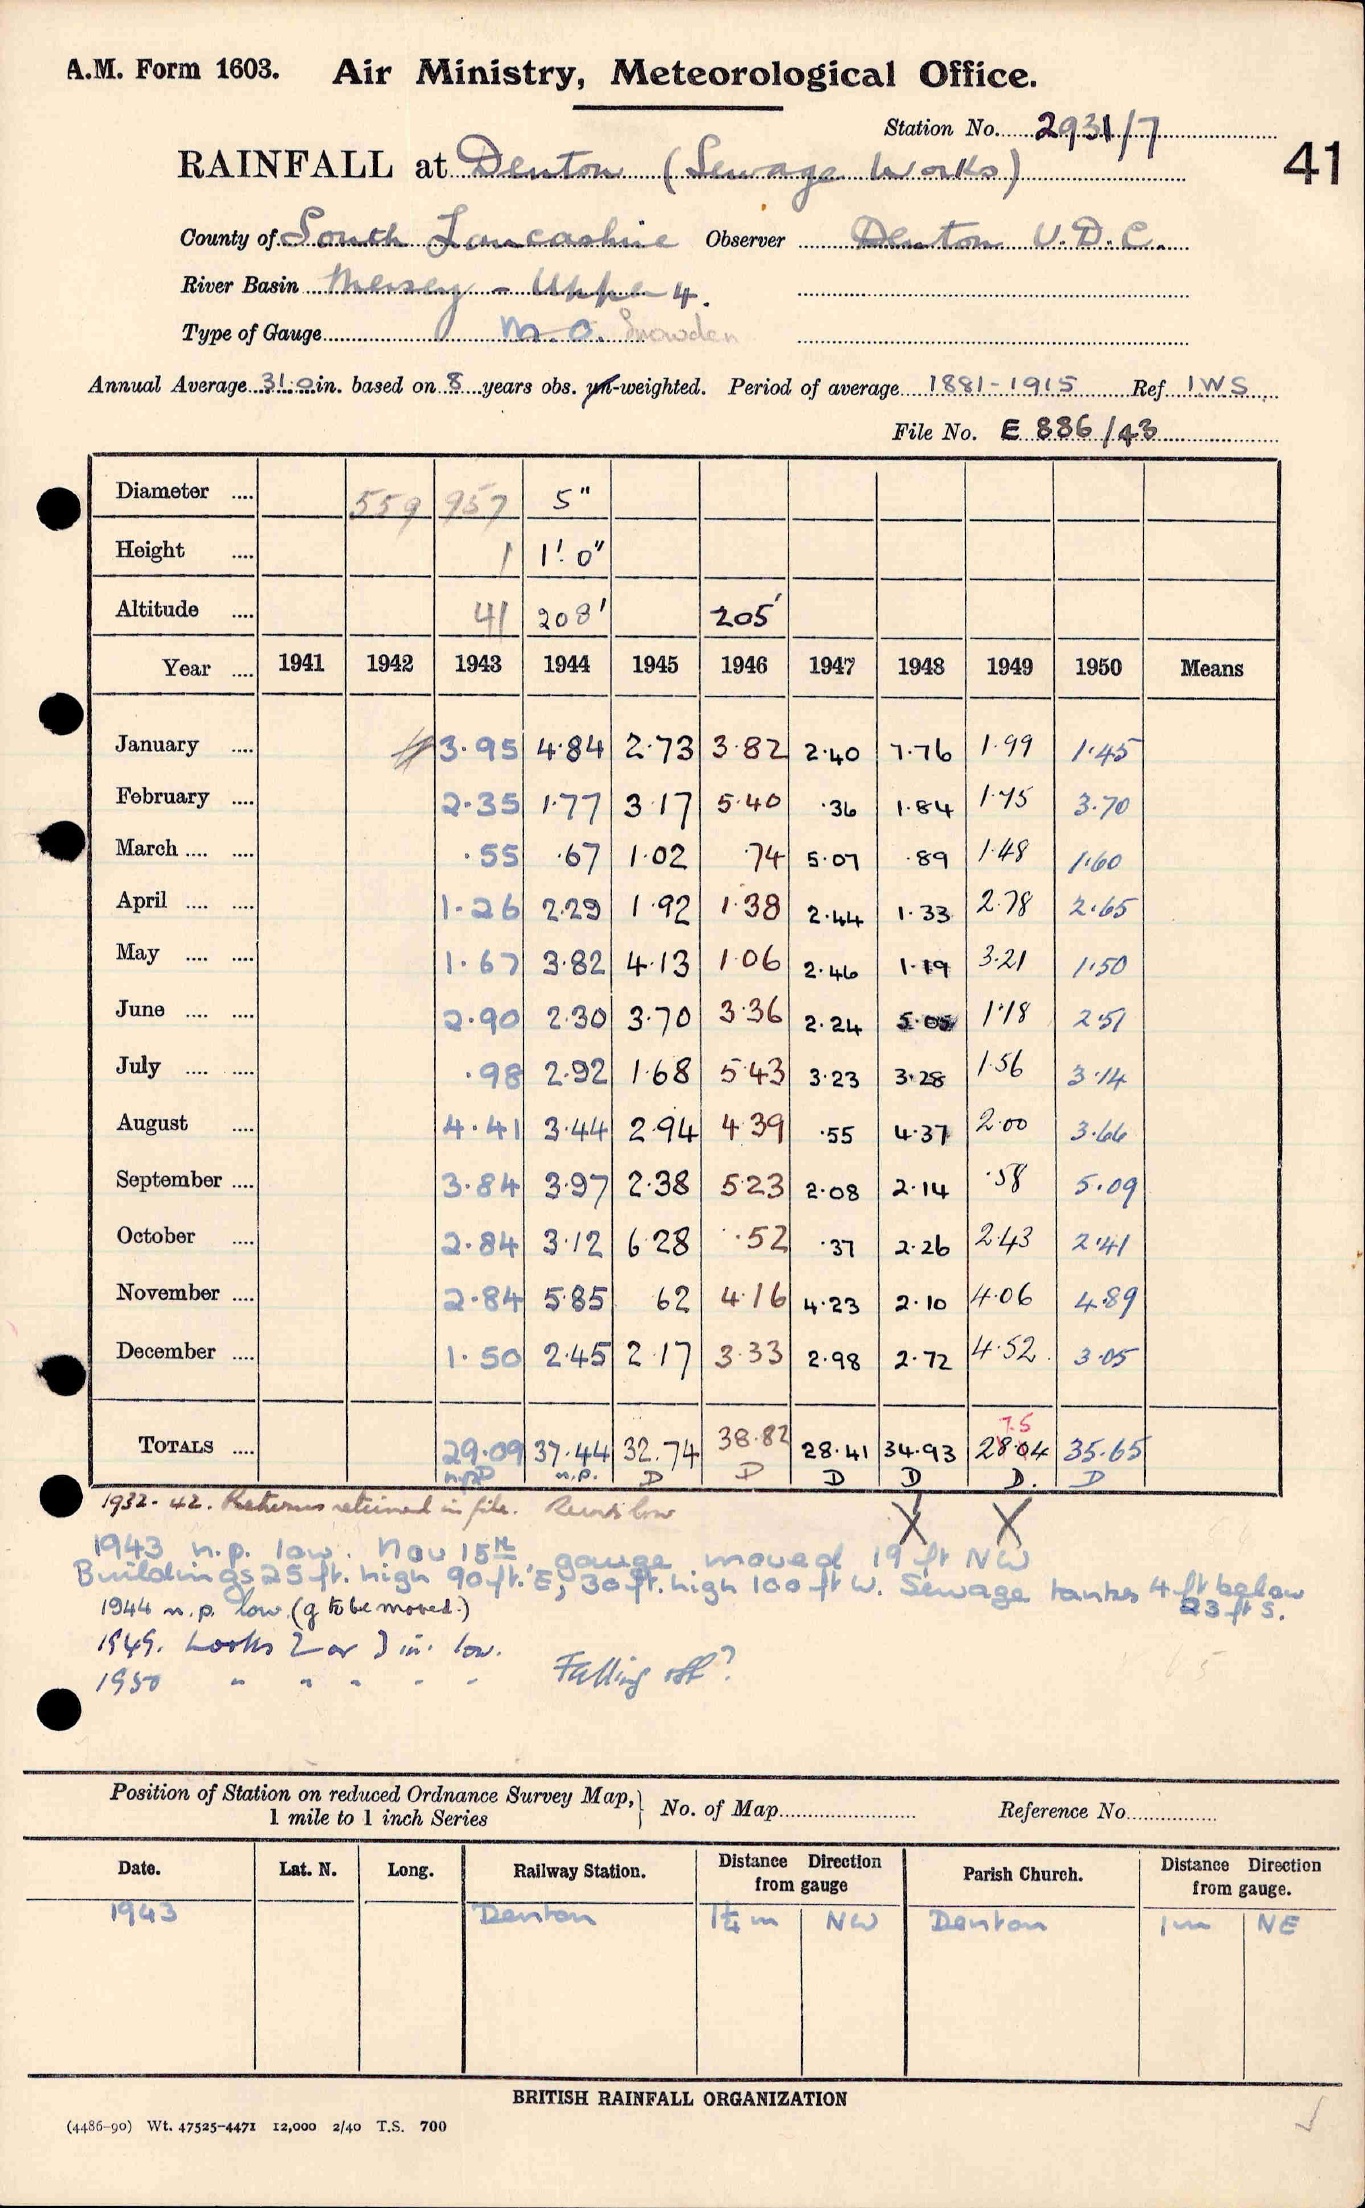 A.M. Form 1603. Air Ministry, Meteorological Office.
Station No. 2931/7
41
RAINFALL at Denton (Sewage Works)
County of South Lancashire Observer Denton U.D.C.
River Basin Mersey - Upper 4.
Type of Gauge M.O. Snowdon
Annual Average 31.0 in. based on 8 years obs. un-weighted. Period of average 1881-1915 Ref IWS
File No. E 886/43
Diameter .... 559 957 5"
Height .... 1 1'.0"
Altitude .... 41 208' 205'
Year .... 1941 1942 1943 1944 1945 1946 1947 1948 1949 1950 Means
January .... 3.95 4.84 2.73 3.82 2.40 7.76 1.99 1.45
February .... 2.35 1.77 3.17 5.40 .36 1.84 3.70
March .... .... .55 .67 1.02 .74 5.07 .89 1.48 1.60
April .... .... 1.26 2.29 1.92 1.38 2.44 1.33 2.78 2.65
May .... .... 1.67 3.82 4.13 1.06 2.46 1.19 3.21 1.50
June .... .... 2.90 2.30 3.70 3.36 2.24 5.05 1.18 2.51
July .... .... .98 2.92 1.68 5.43 3.23 3.28 1.56 3.14
August .... 4.41 3.44 2.94 4.39 .55 4.37 2.00 3.66
September .... 3.84 3.97 2.38 5.23 2.08 2.14 .58 5.09
October .... 2.84 3.12 6.28 .52 .37 2.26 2.43 2.41
November .... 2.84 5.85 62 4.16 4.23 2.10 4.06 4.89
December .... 1.50 2.45 2.17 3.33 2.98 2.72 4.52 3.05
7.5
TOTALS .... 29.09 37.44 32.74 38.82 28.41 34.93 28.04 35.65
n.p. D n.p. D D D D D. D
1932-42. Returns retained in file. Reads low
X X
1943 n.p. low. Nov 15th, gauge moved 19 ft NW
Buildings 25ft. high 90ft. E, 30ft. high 100ft W. Sewage tanks 4 ft below
23 ft S.
1944 n.p. low (g to be moved.)
1949. Looks 2 or 3 in. low.
1950 " " " " " Falling off?
Position of Station on reduced Ordnance Survey Map,} No. of Map Reference No.
1 mile to 1 inch Series
Date. Lat. N. Long. Railway Station. Distance from gauge Direction Parish Church. Distance from gauge. Direction
1943 Denton 1¼ m NW Denton 1m NE
BRITISH RAINFALL ORGANIZATION
(4486-90) Wt. 47525-4471 12,000 2/40 T.S. 700